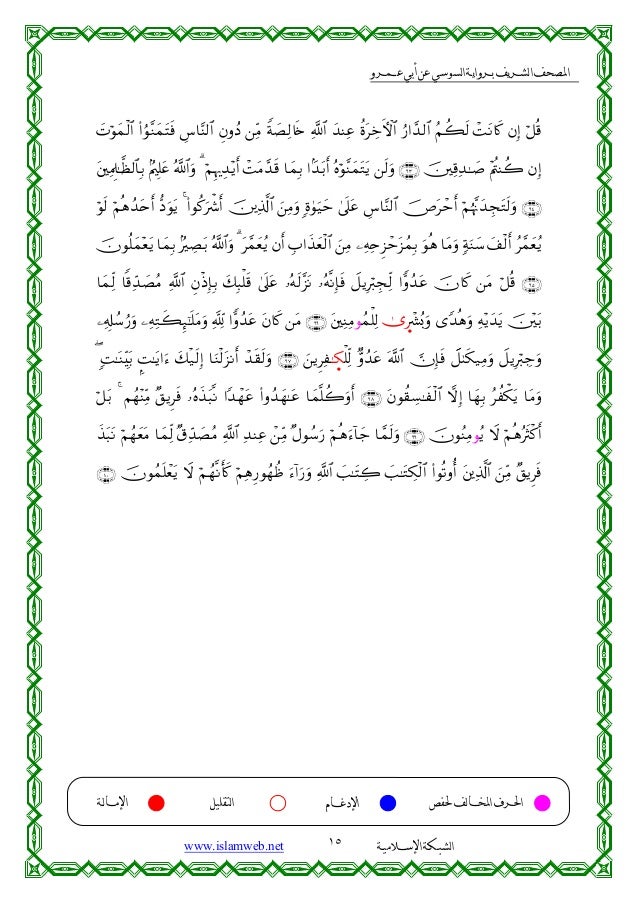 المصحف الشريف برواية السوسي عن أبي عمرو
قُلْ إِن كَانَتْ لَكُمُ ٱلدَّارُ ٱلْأَخِرَةُ عِندَ ٱللَّهِ خَالِصَةً مِّن دُونِ ٱلنَّاسِ فَتَمَنَّوُا۟ ٱلْمَوْتَ
إِن كُنتُمْ صَـٰدِقِينَ ۝ وَلَن يَتَمَنَّوْهُ أَبَدًۢا بِمَا قَدَّمَتْ أَيْدِيهِمْ ۗ وَٱللَّهُ عَلِيمٌۢ بِٱلظَّـٰلِمِينَ
۝ وَلَتَجِدَنَّهُمْ أَحْرَصَ ٱلنَّاسِ عَلَىٰ حَيَوٰةٍ وَمِنَ ٱلَّذِينَ أَشْرَكُوا۟ ۚ يَوَدُّ أَحَدُهُمْ لَوْ
يُعَمَّرُ أَلْفَ سَنَةٍ وَمَا هُوَ بِمُزَحْزِحِهِۦ مِنَ ٱلْعَذَابِ أَن يُعَمَّرَ ۗ وَٱللَّهُ بَصِيرٌۢ بِمَا يَعْمَلُونَ
۝ قُلْ مَن كَانَ عَدُوًّا لِّجِبْرِيلَ فَإِنَّهُۥ نَزَّلَهُۥ عَلَىٰ قَلْبِكَ بِإِذْنِ ٱللَّهِ مُصَدِّقًا لِّمَا
بَيْنَ يَدَيْهِ وَهُدًى وَبُشْرَىٰ لِلْمُومِنِينَ ۝ مَن كَانَ عَدُوًّا لِّلَّهِ وَمَلَـٰٓئِكَتِهِۦ وَرُسُلِهِۦ
وَجِبْرِيلَ وَمِيكَىٰلَ فَإِنَّ ٱللَّهَ عَدُوٌّ لِّلْكَـٰفِرِينَ ۝ وَلَقَدْ أَنزَلْنَآ إِلَيْكَ ءَايَـٰتٍۭ بَيِّنَـٰتٍ ۖ
وَمَا يَكْفُرُ بِهَآ إِلَّا ٱلْفَـٰسِقُونَ ۝ أَوَكُلَّمَا عَـٰهَدُوا۟ عَهْدًا نَّبَذَهُۥ فَرِيقٌ مِّنْهُم ۚ بَلْ
أَكْثَرُهُمْ لَا يُومِنُونَ ۝ وَلَمَّا جَآءَهُمْ رَسُولٌ مِّنْ عِندِ ٱللَّهِ مُصَدِّقٌ لِّمَا مَعَهُمْ نَبَذَ
فَرِيقٌ مِّنَ ٱلَّذِينَ أُوتُوا۟ ٱلْكِتَـٰبَ كِتَـٰبَ ٱللَّهِ وَرَآءَ ظُهُورِهِمْ كَأَنَّهُمْ لَا يَعْلَمُونَ ۝
الحرف المخالف لحفص الإدغام التقليل الإمالة
الشبكة الإسلامية ١٥ www.islamweb.net